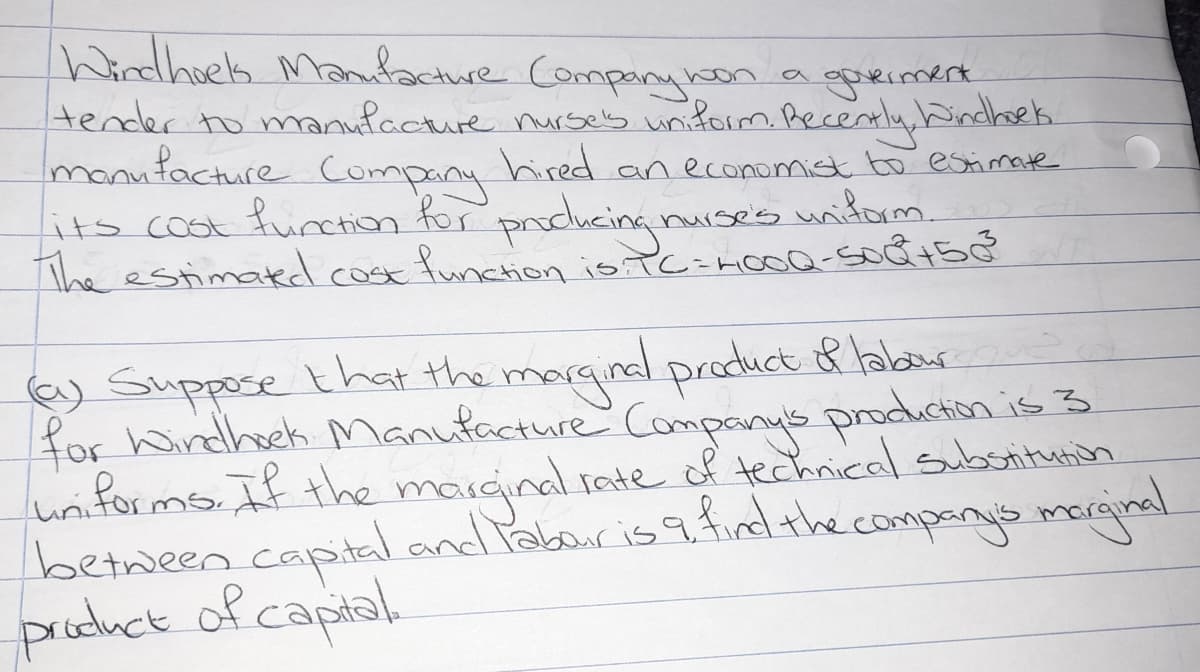 Windhoek Manufacture Company won a goverment
tender to manufacture nurse's uniform. Recently, Windhoek
manufacture Company hired an economist to estimate
its cost function for producing nurse's uniform.
The estimated cost function is: TC = 400Q - 50Q² + 5Q³
(a) Suppose that the marginal product of labour
for Windhoek Manufacture Company's production is 3
uniforms. If the marginal rate of technical substitution
between capital and labour is 9, find the company's marginal
product of capital.